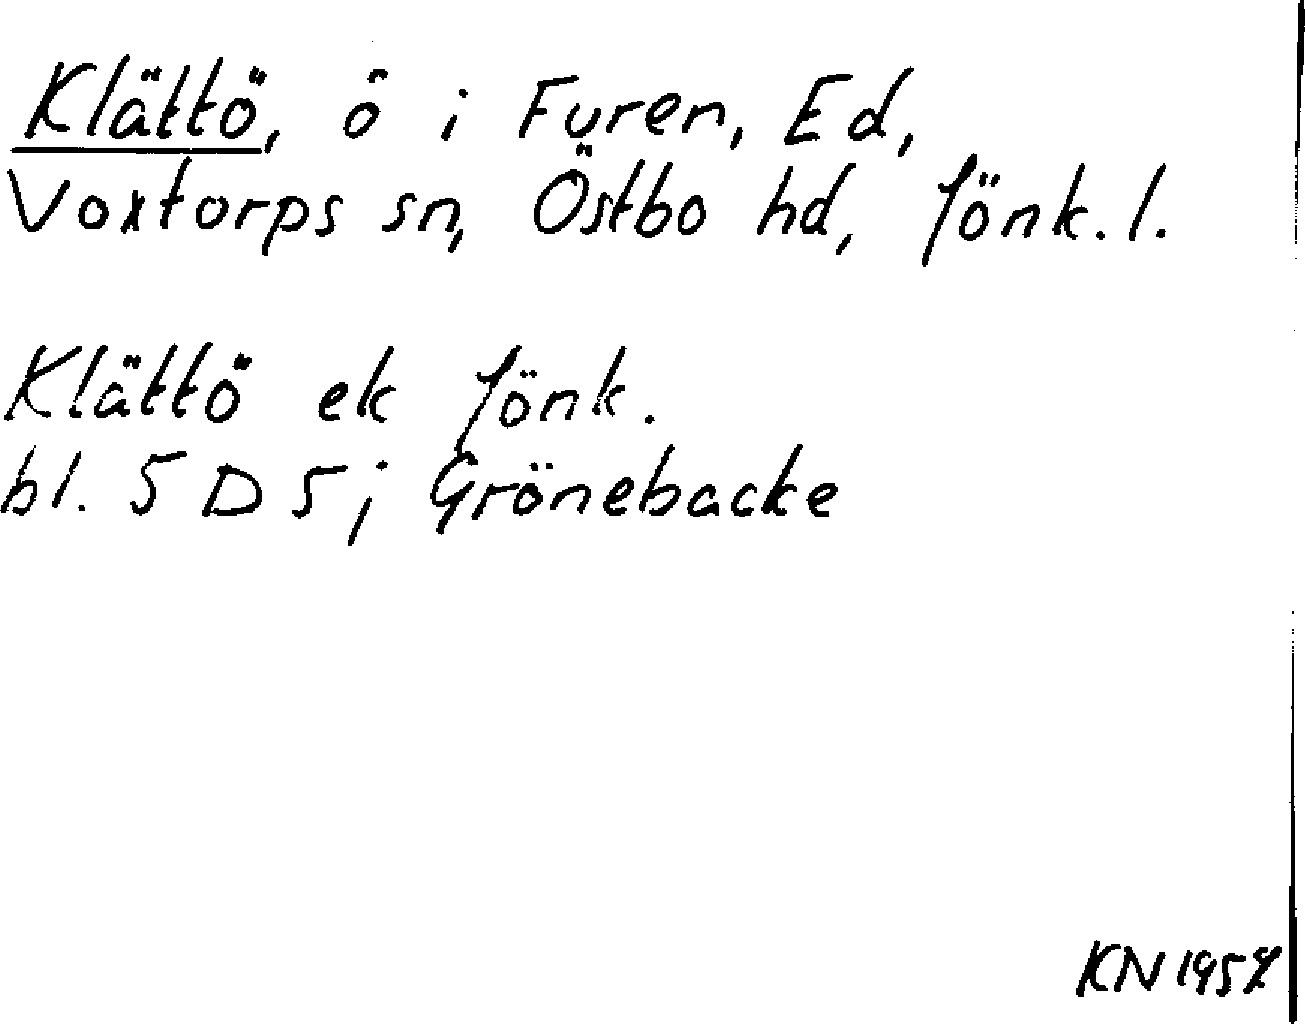 Klättö, ö i Furen, Ed,
Voxtorps sn, Östbo hd, Jönk. l.
Klättö ek Jönk.
bl. 5 D 5j Grönebacke
KN 1957